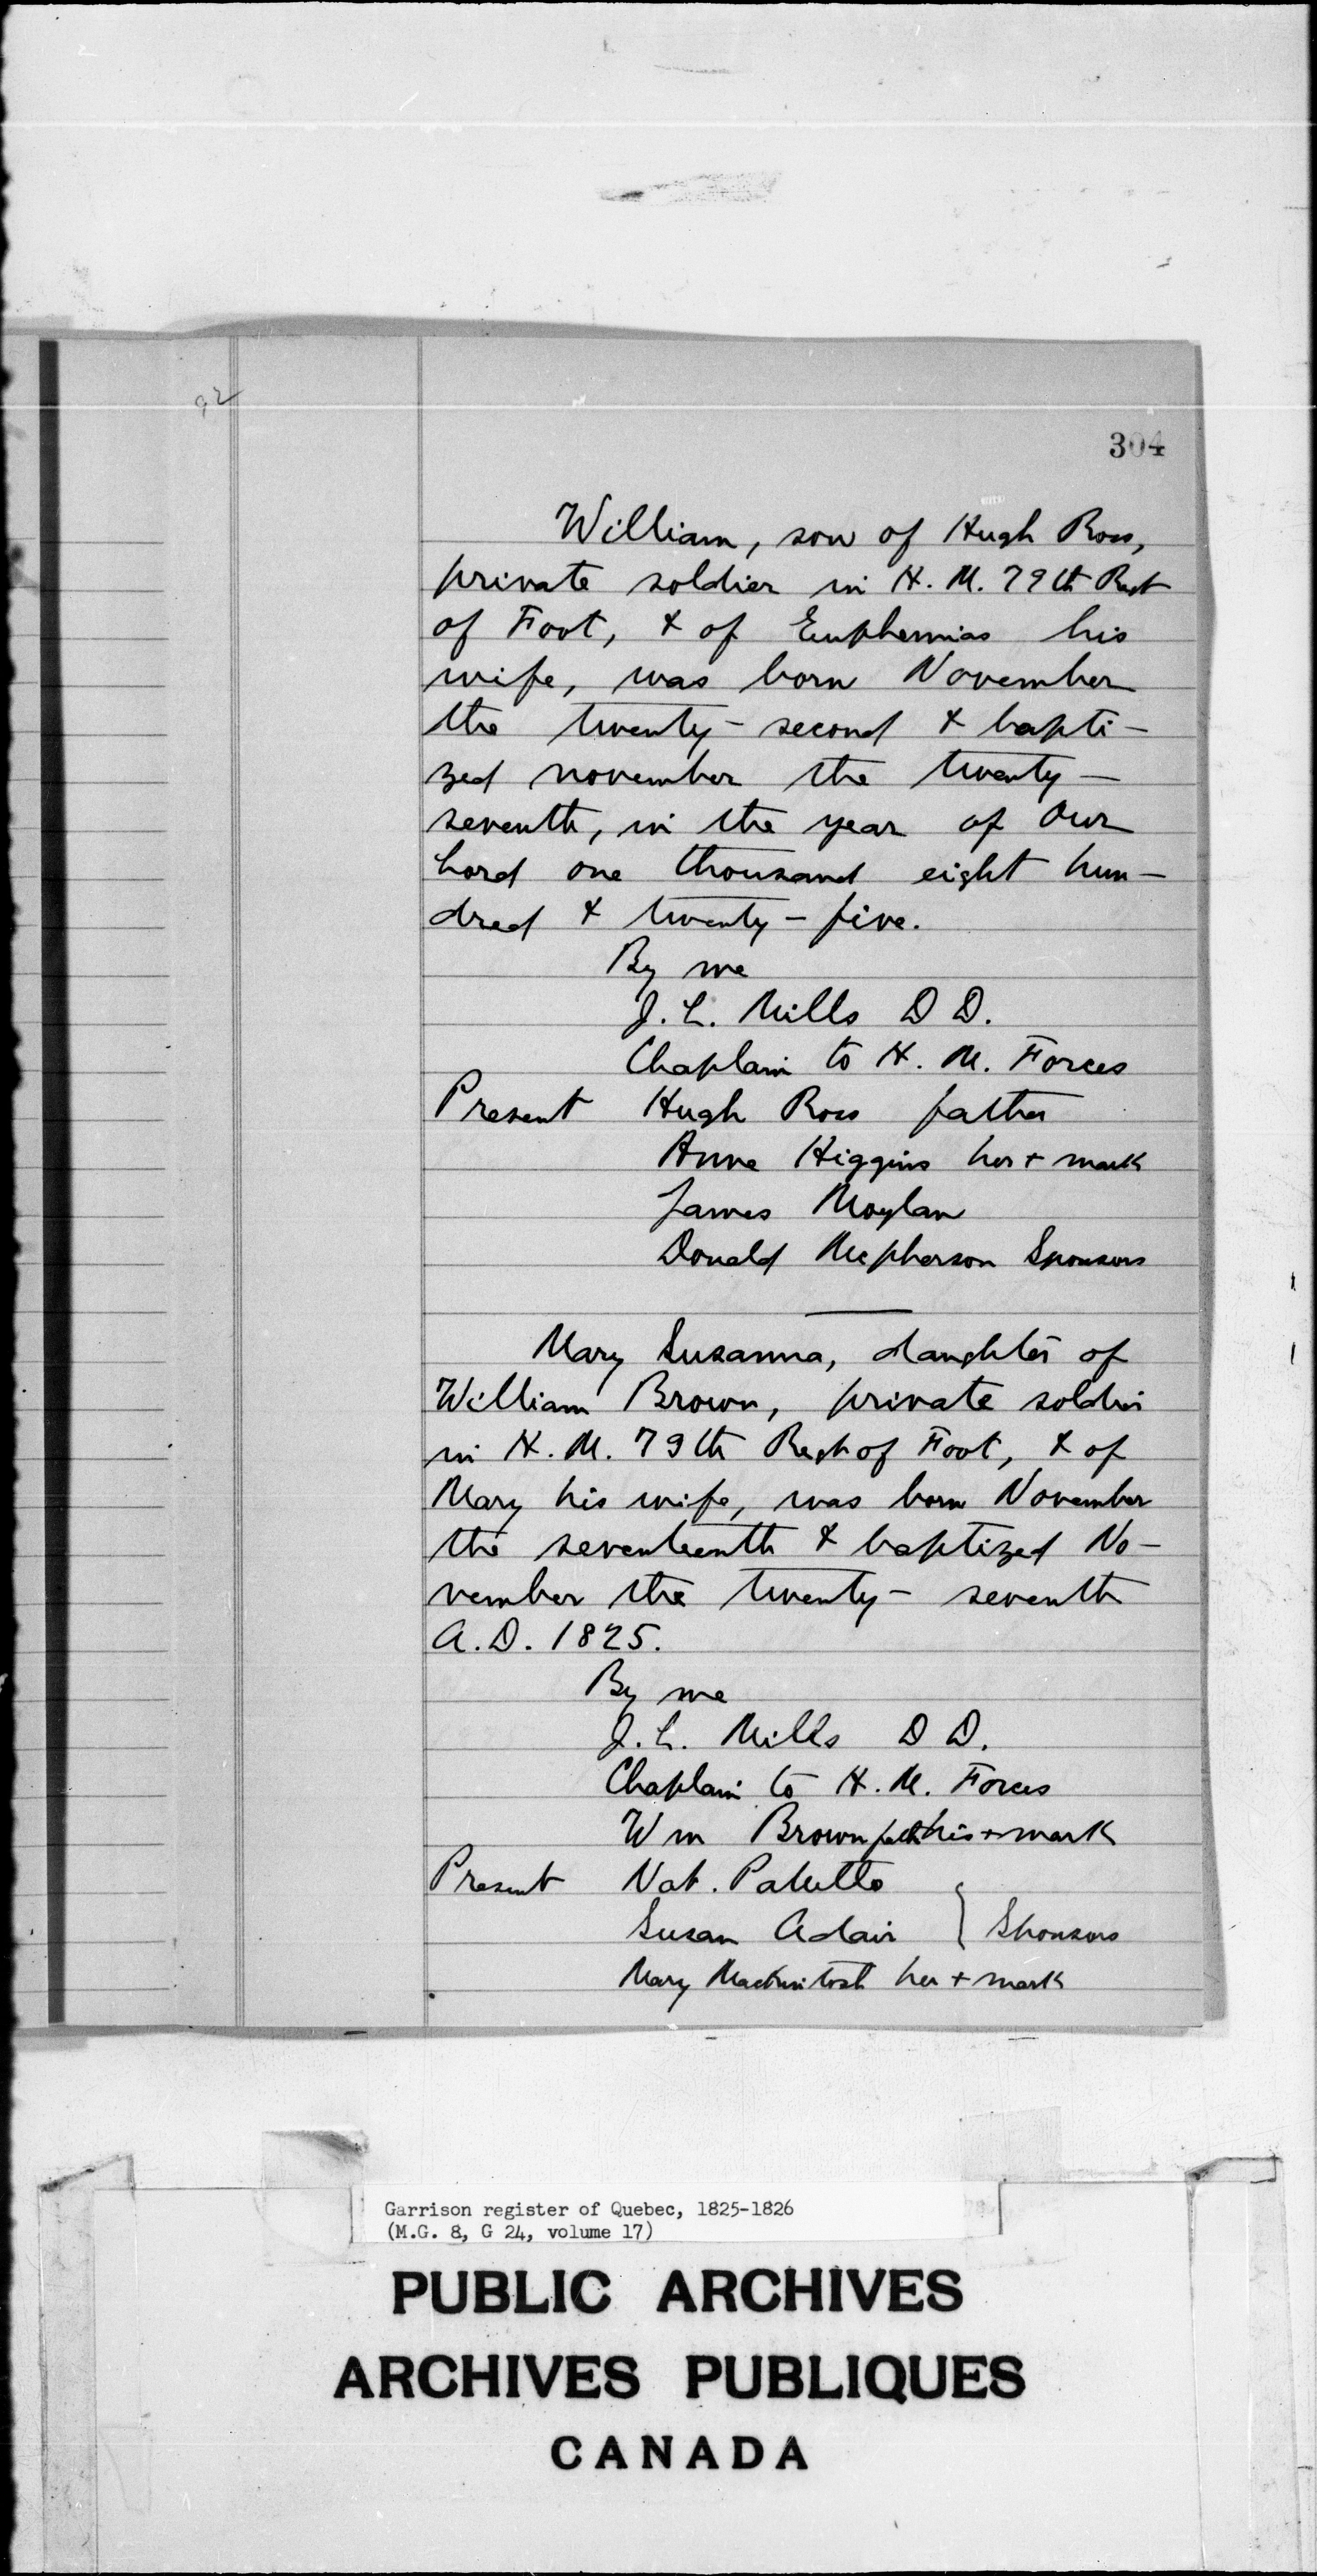 92
304
William, son of Hugh Ross,
private soldier in H. M. 79th Regt
of Foot, & of Euphemias his
wife, was born November
the twenty- second & bapti-
zed november the twenty-
seventh, in the year of Our
Lord one thousand eight hun-
dred & twenty-five.
By me
J. L. Mills D D.
Chaplain to H. M. Forces
Present Hugh Ross father
Anne Higgins her + mark
James Moylan
Donald Mcpherson Sponsors
Mary Susanna, daughter of
William Brown, private soldier
in H. M. 79th Regt of Foot, & of
Mary his wife, was born November
the seventeenth & baptized No-
vember the twenty- seventh
A.D. 1825.
By me
J. L. Mills D D.
Chaplain to H. M. Forces
Wm Brown fath his + mark
Present Nat.
Susan Adair } Sponsors
Mary her + mark
Garrison register of Quebec, 1825-1826
(M.G. 8, G 24, volume 17)
PUBLIC ARCHIVES
ARCHIVES PUBLIQUES
CANADA